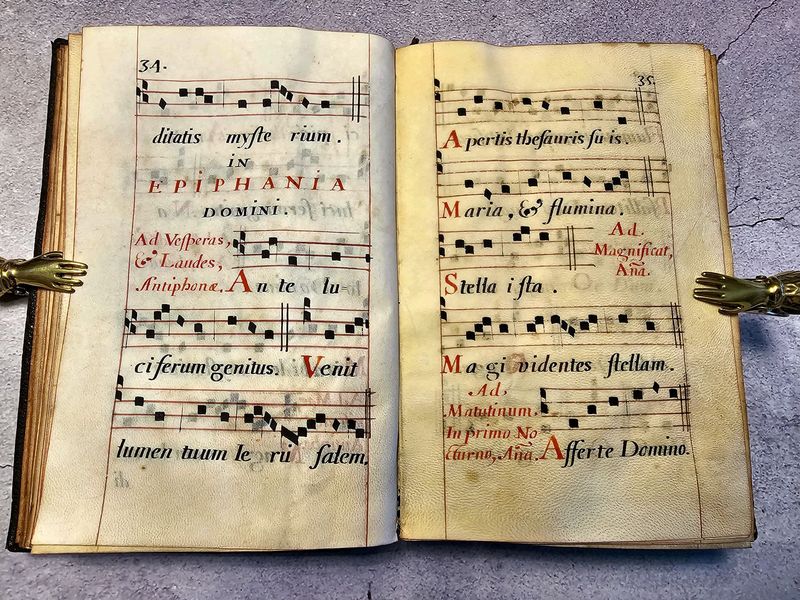 34.
ditatis myſte rium.
IN
EPIPHANIA
DOMINI.
Ad Veſperas,
& Laudes,
Antiphonæ. An te lu-
ciferum genitus. Venit
lumen tuum Ie ru ſalem.
35
Apertis theſauris ſu is.
Maria, & flumina.
Ad
Magnificat,
Aña.
Stella i ſta.
Ma gi videntes ſtellam.
Ad
Matutinum.
In primo No
cturno, Aña. Afferte Domino.